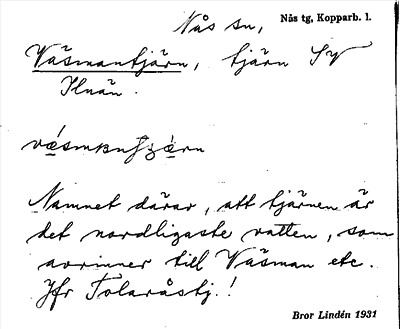 Nås sn,
Nås tg, Kopparb. l.
Väsmantjärn, tjärn SV
Ilnän.
Namnet därav, att tjärnen är
det nordligaste vatten, som
avrinner till Väsman etc.
Jfr Tolaråstj.!
Bror Lindén 1931